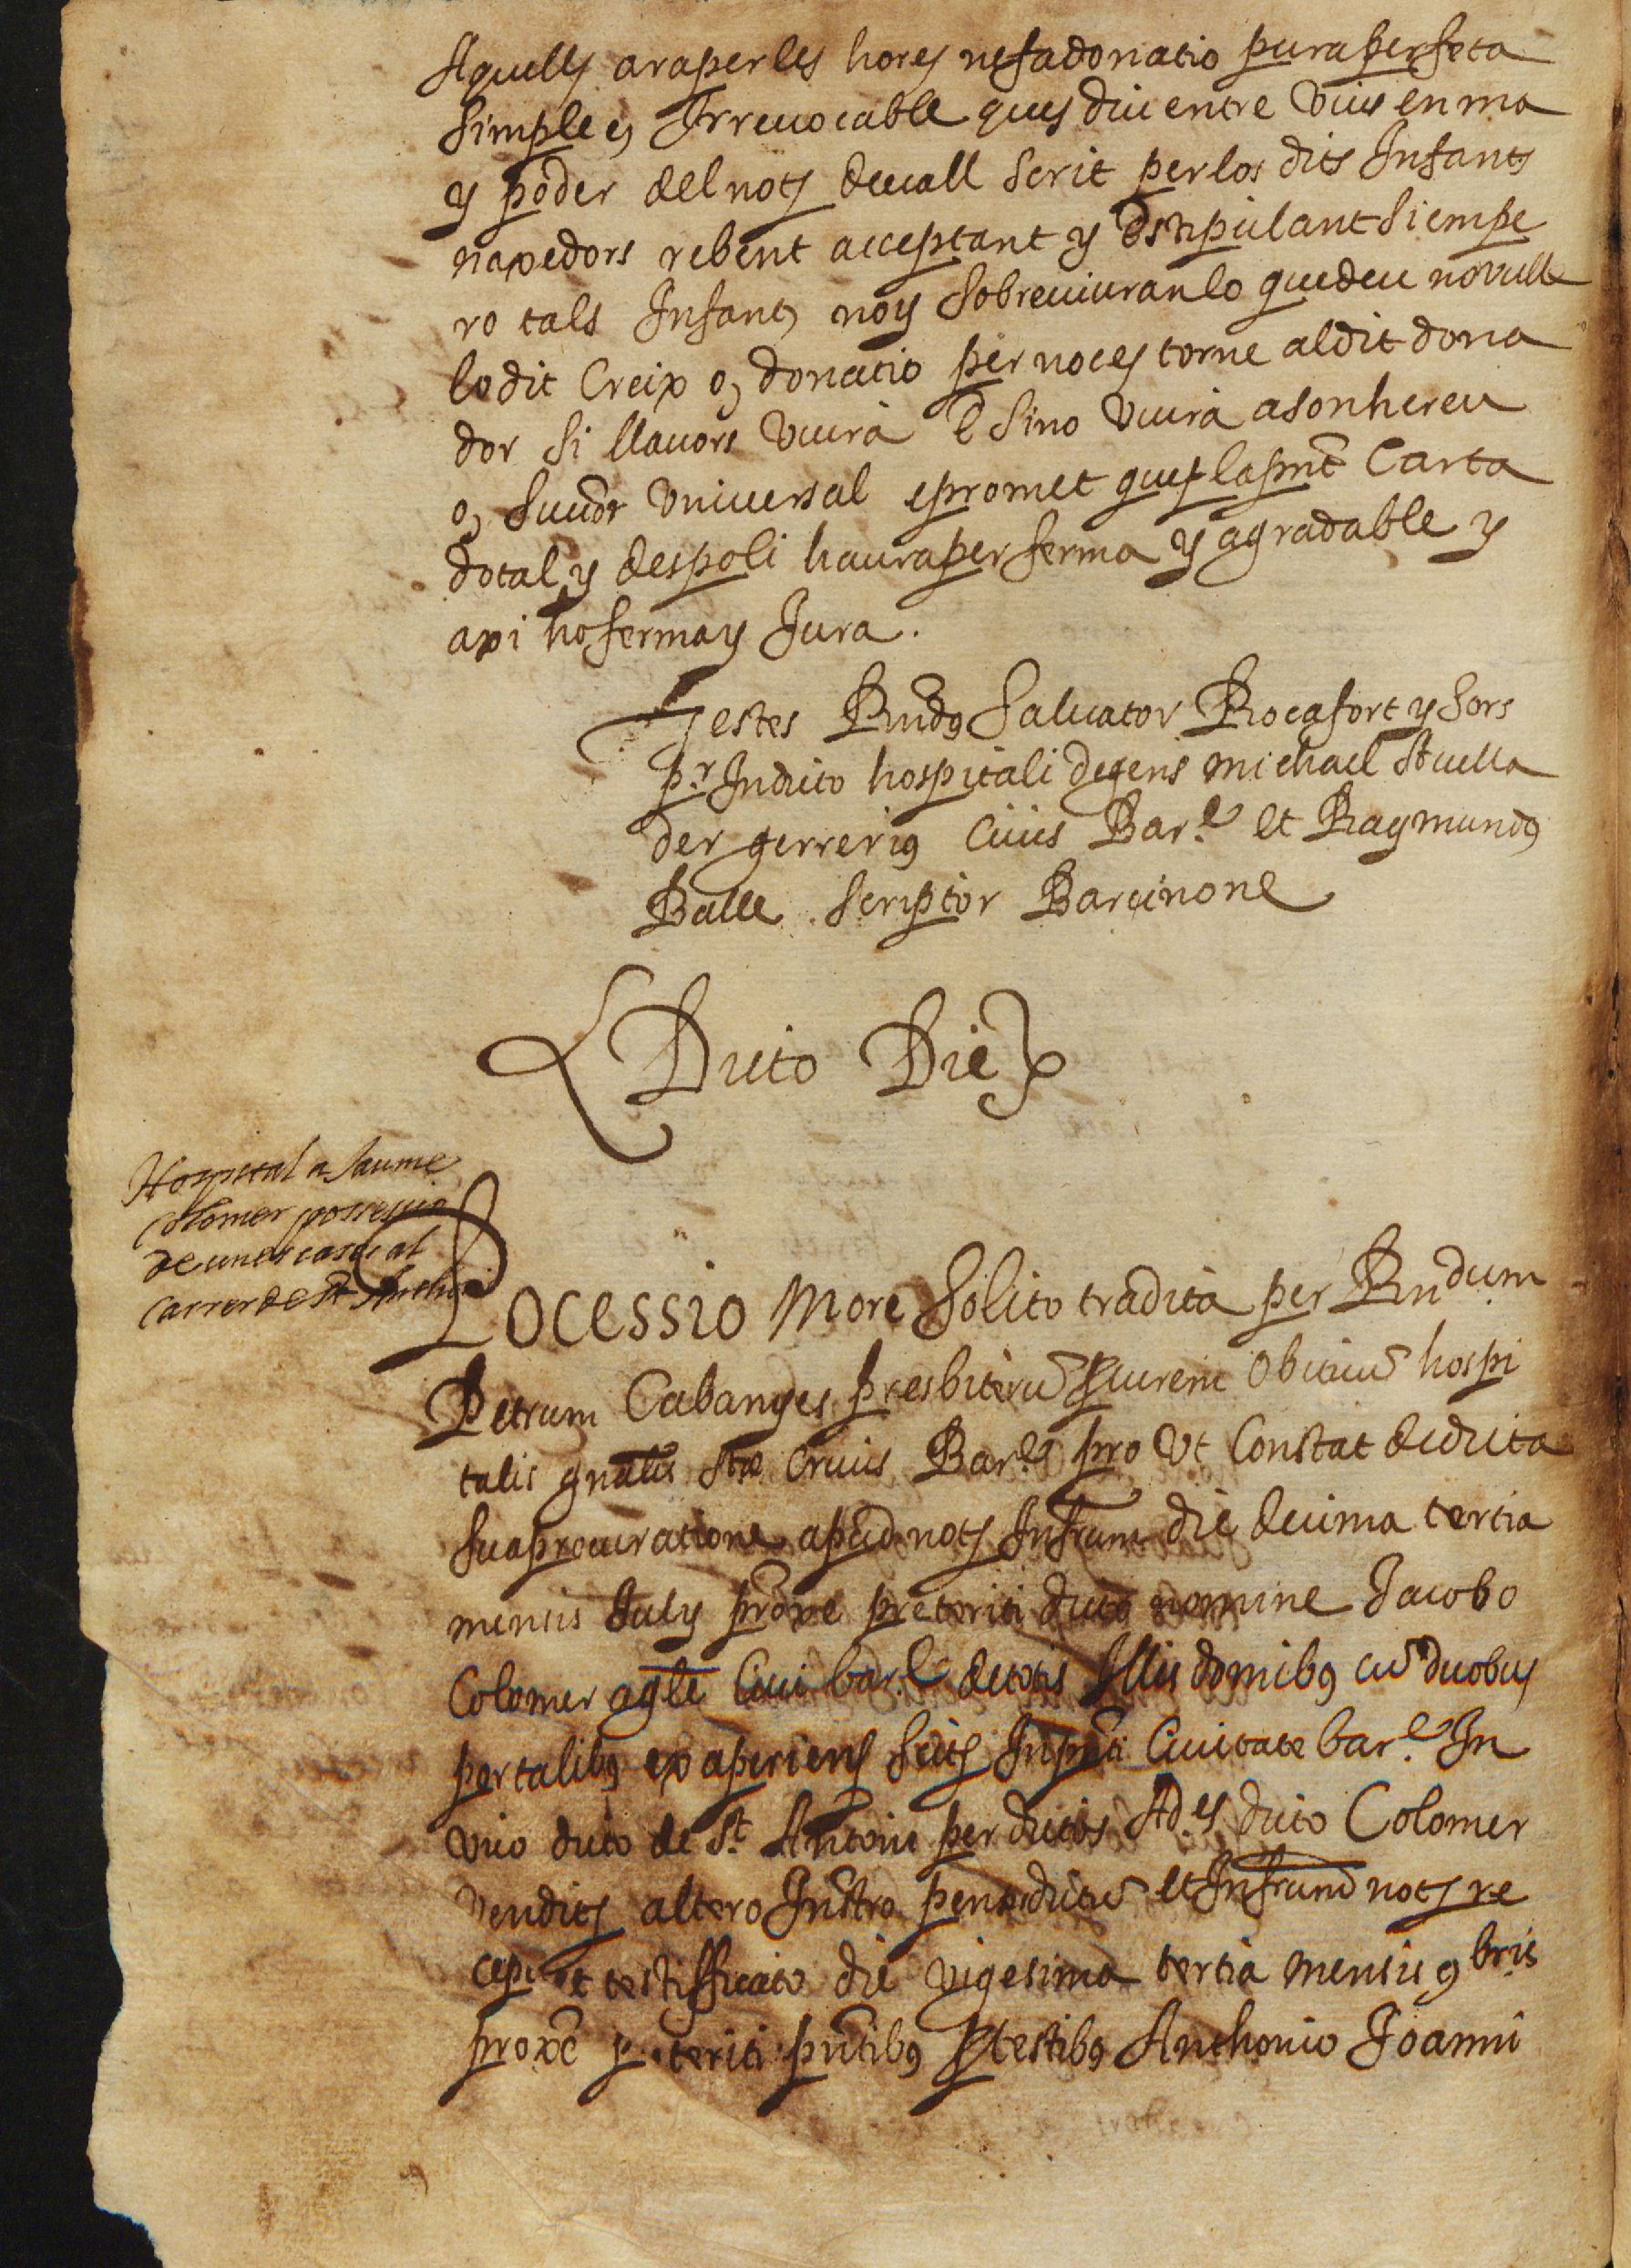 Aquells araperles hores nefadonatio pura perfeta
Simple e, Irreuocable ques diu entre Viuis en ma
y poder del noty deuall Scrit per los dits Infants
naxedors rebent acceptant y Estipulant Si empe
ro tals Infants noy Sobreuiuran lo quedeu no vulle
lo dit Creix o, donatio per noces torne al dit dona
dor Si llauors Viura E Sino Viura a son hereu
o, Succor Vniuersal e promet ques la pnt Carta
dotal y despoli haura per ferma y agradable y
axi ho ferma y Jura.
Testes Rndus Saluator Rocafort y Sors
pr. In dicto hospitali degens Michael Stuella
der gerrerius Ciuis Bar.e et Raymundus
Balle Scriptor Barcinone
Dicto Die
Hospital a Jaume
Colomer possessio
de unes cases al
carrer de St Anthoni
Pocessio More Solito tradita per Rndum
Petrum Cabanyes presbiterũ procurem Obitiuũ hospi
talis gnalis Stæ Crucis Bar.e pro Vt Constat de dicta
Sua procuratione apud noty Infrum die decima tertia
mensis July proxe preteriti dicto nomine Jacobo
Colomer agle Ciui bar.e de totis Illis domibus cũ duobus
portalibus ex aperiens Scitis In pnti Ciuitate bar.e In
Vico dicto de St. Antoni per dictos Ad.es dicto Colomer
Venditis altero Instro penes dictũ et Infrum noty re
cepto et testifficato die Vigesima tertia mensis 9bris
proxe preteriti pntibus p testibus Anthonio Joanni